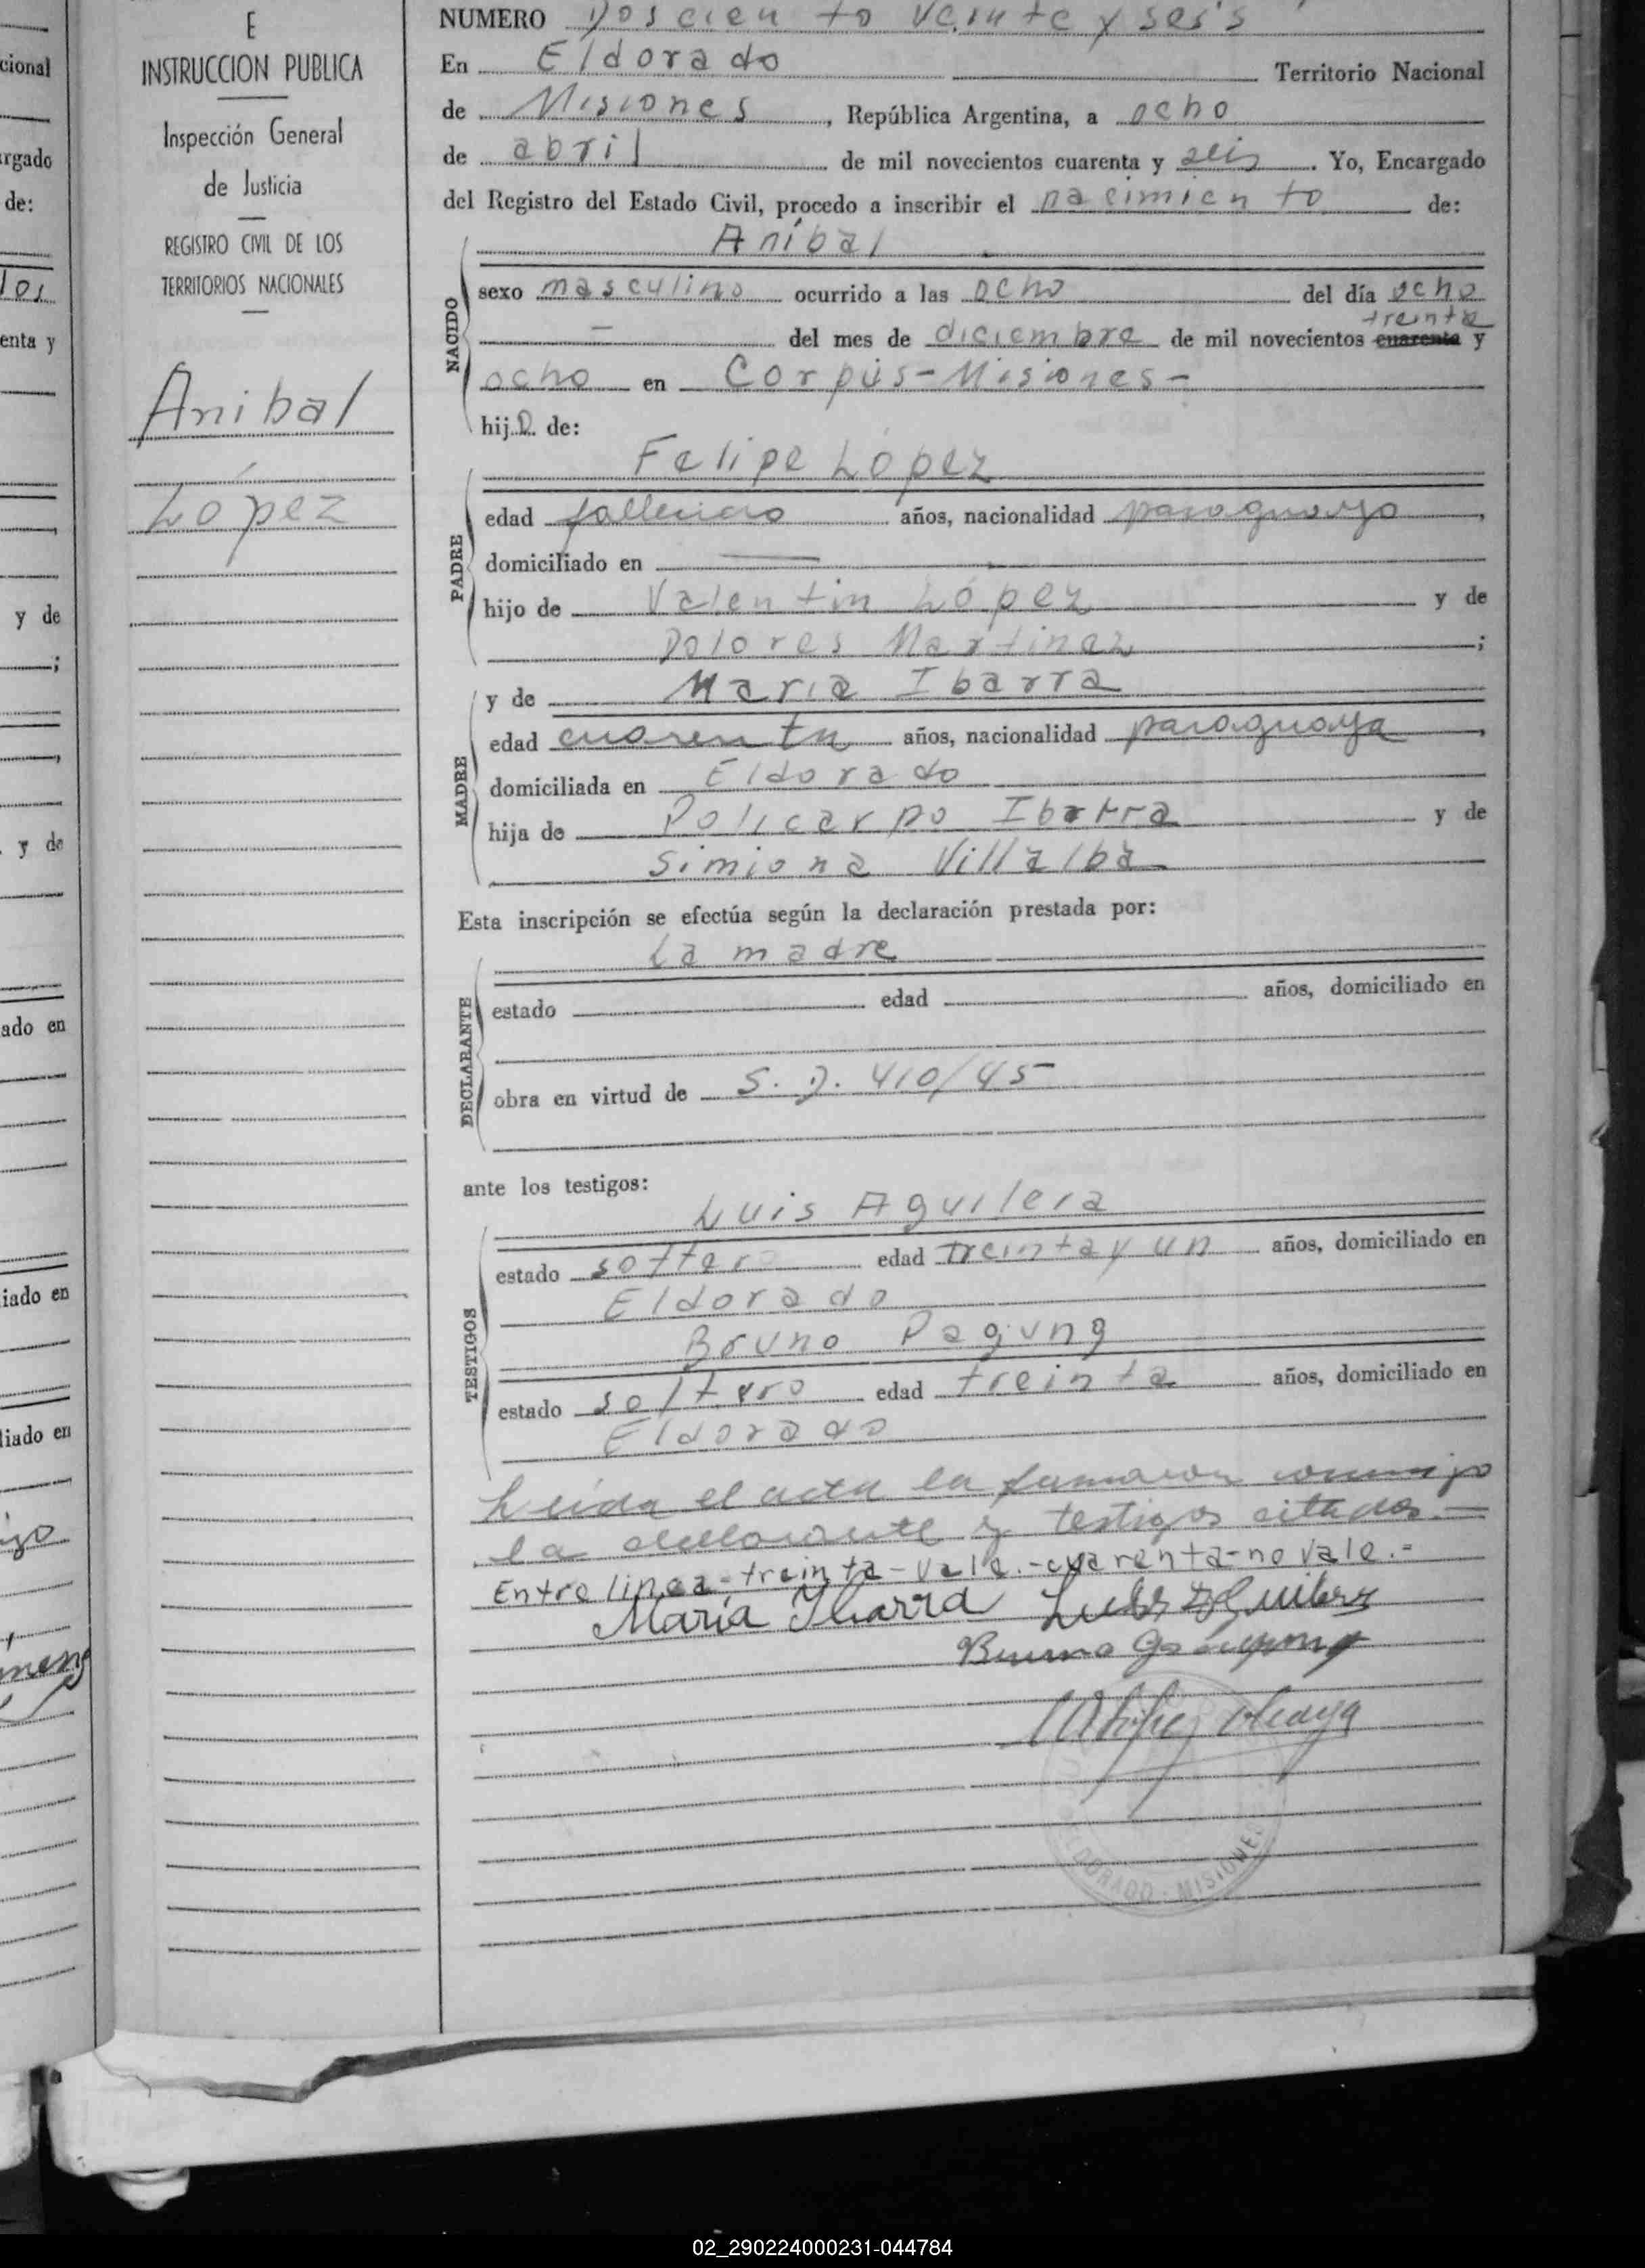 cional
rgado
de:
los
enta y
y de
y de
ado en
iado en
liado en
E
INSTRUCCION PUBLICA
Inspección General
de Justicia
REGISTRO CIVIL DE LOS
TERRITORIOS NACIONALES
Anibal
López
NUMERO Doscien to veinte y seis
En Eldorado Territorio Nacional
de Misiones, República Argentina, a ocho
de abril de mil novecientos cuarenta y seis. Yo, Encargado
del Registro del Estado Civil, procedo a inscribir el nacimiento de:
NACIDO
Aníbal
sexo masculino ocurrido a las ocho del día ocho
treinta
— del mes de diciembre de mil novecientos cuarenta y
ocho en Corpus-Misiones-
hijo de:
PADRE
Felipe López
edad fallecido años, nacionalidad paraguayo,
domiciliado en —
hijo de Valentin López y de
Dolores Martinez;
MADRE
y de Maria Ibarra
edad cuarenta años, nacionalidad paraguaya,
domiciliada en Eldorado
hija de Policarpo Ibarra y de
Simiona Villalba
Esta inscripción se efectúa según la declaración prestada por:
DECLARANTE
La madre
estado edad años, domiciliado en
obra en virtud de S. J. 410/45
ante los testigos:
TESTIGOS
Luis Aguilera
estado soltero edad treinta y un años, domiciliado en
Eldorado
Bruno Pagung
estado soltero edad treinta años, domiciliado en
Eldorado
Leida el acta la firmaron conmigo
la declarante y testigos citados.—
Entre linea-treinta-vale.-cuarenta-no vale.-
María Ibarra
Bruno
ELDORADO - MISIONES
02_290224000231-044784